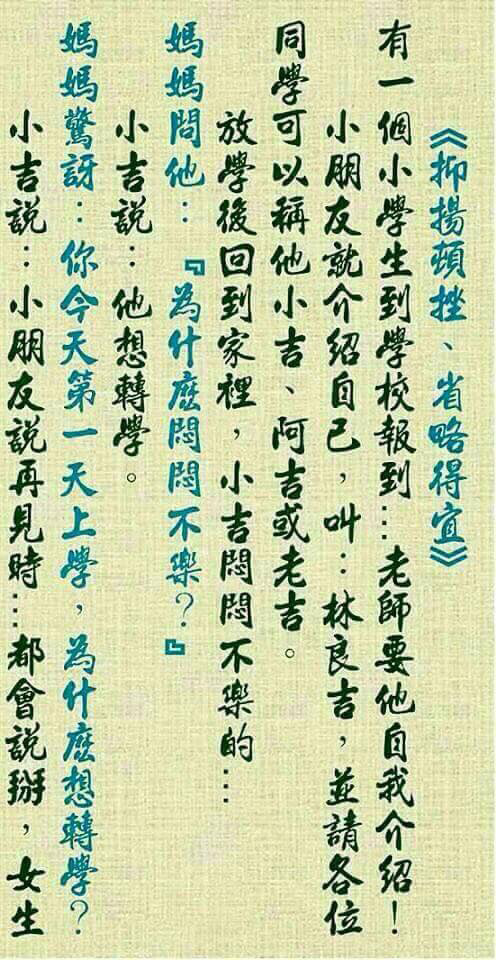 《抑揚頓挫、省略得宜》
有一個小學生到學校報到…老師要他自我介紹！
小朋友就介紹自己，叫：林良吉，並請各位
同學可以稱他小吉、阿吉或老吉。
放學後回到家裡，小吉悶悶不樂的…
媽媽問他：『為什麼悶悶不樂？』
小吉說：他想轉學。
媽媽驚訝：你今天第一天上學，為什麼想轉學？
小吉說：小朋友說再見時…都會說掰，女生